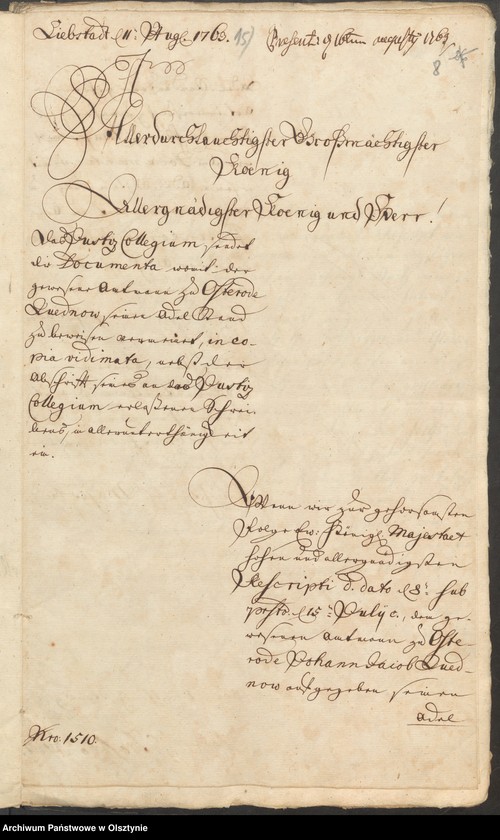 Liebstadt d 11t Augl. 1763. 15)
Present: d 16tum augusty 1763
8
Allerdurchlauchtigster Großmächtigster
Koenig
Allergnädigster Koenig und Herr!
Das Justiz Collegium sendet
die Documenta womit der
gewesene Amtmann zu Osterode
Quednow seinen Adel Stand
zu beweisen vermeinet, in co-
pia vidimata, nebst der
Abschrifft seines an das Justiz
Collegium erlaßenen Schrei-
bens, in allerunterthänigkeit
ein.
Wenn wir zur gehorsamsten
Folge Ew: Königl Majestaet
hohen und allergnädigsten
Rescripti d. dato d 8t sub
praesto d 15t July c., dem ge-
wesenen Amtmann zu Oste-
rode Johann Jacob Qued-
now aufgegeben seinen
Adel
Nro: 1510.
Archiwum Państwowe w Olsztynie